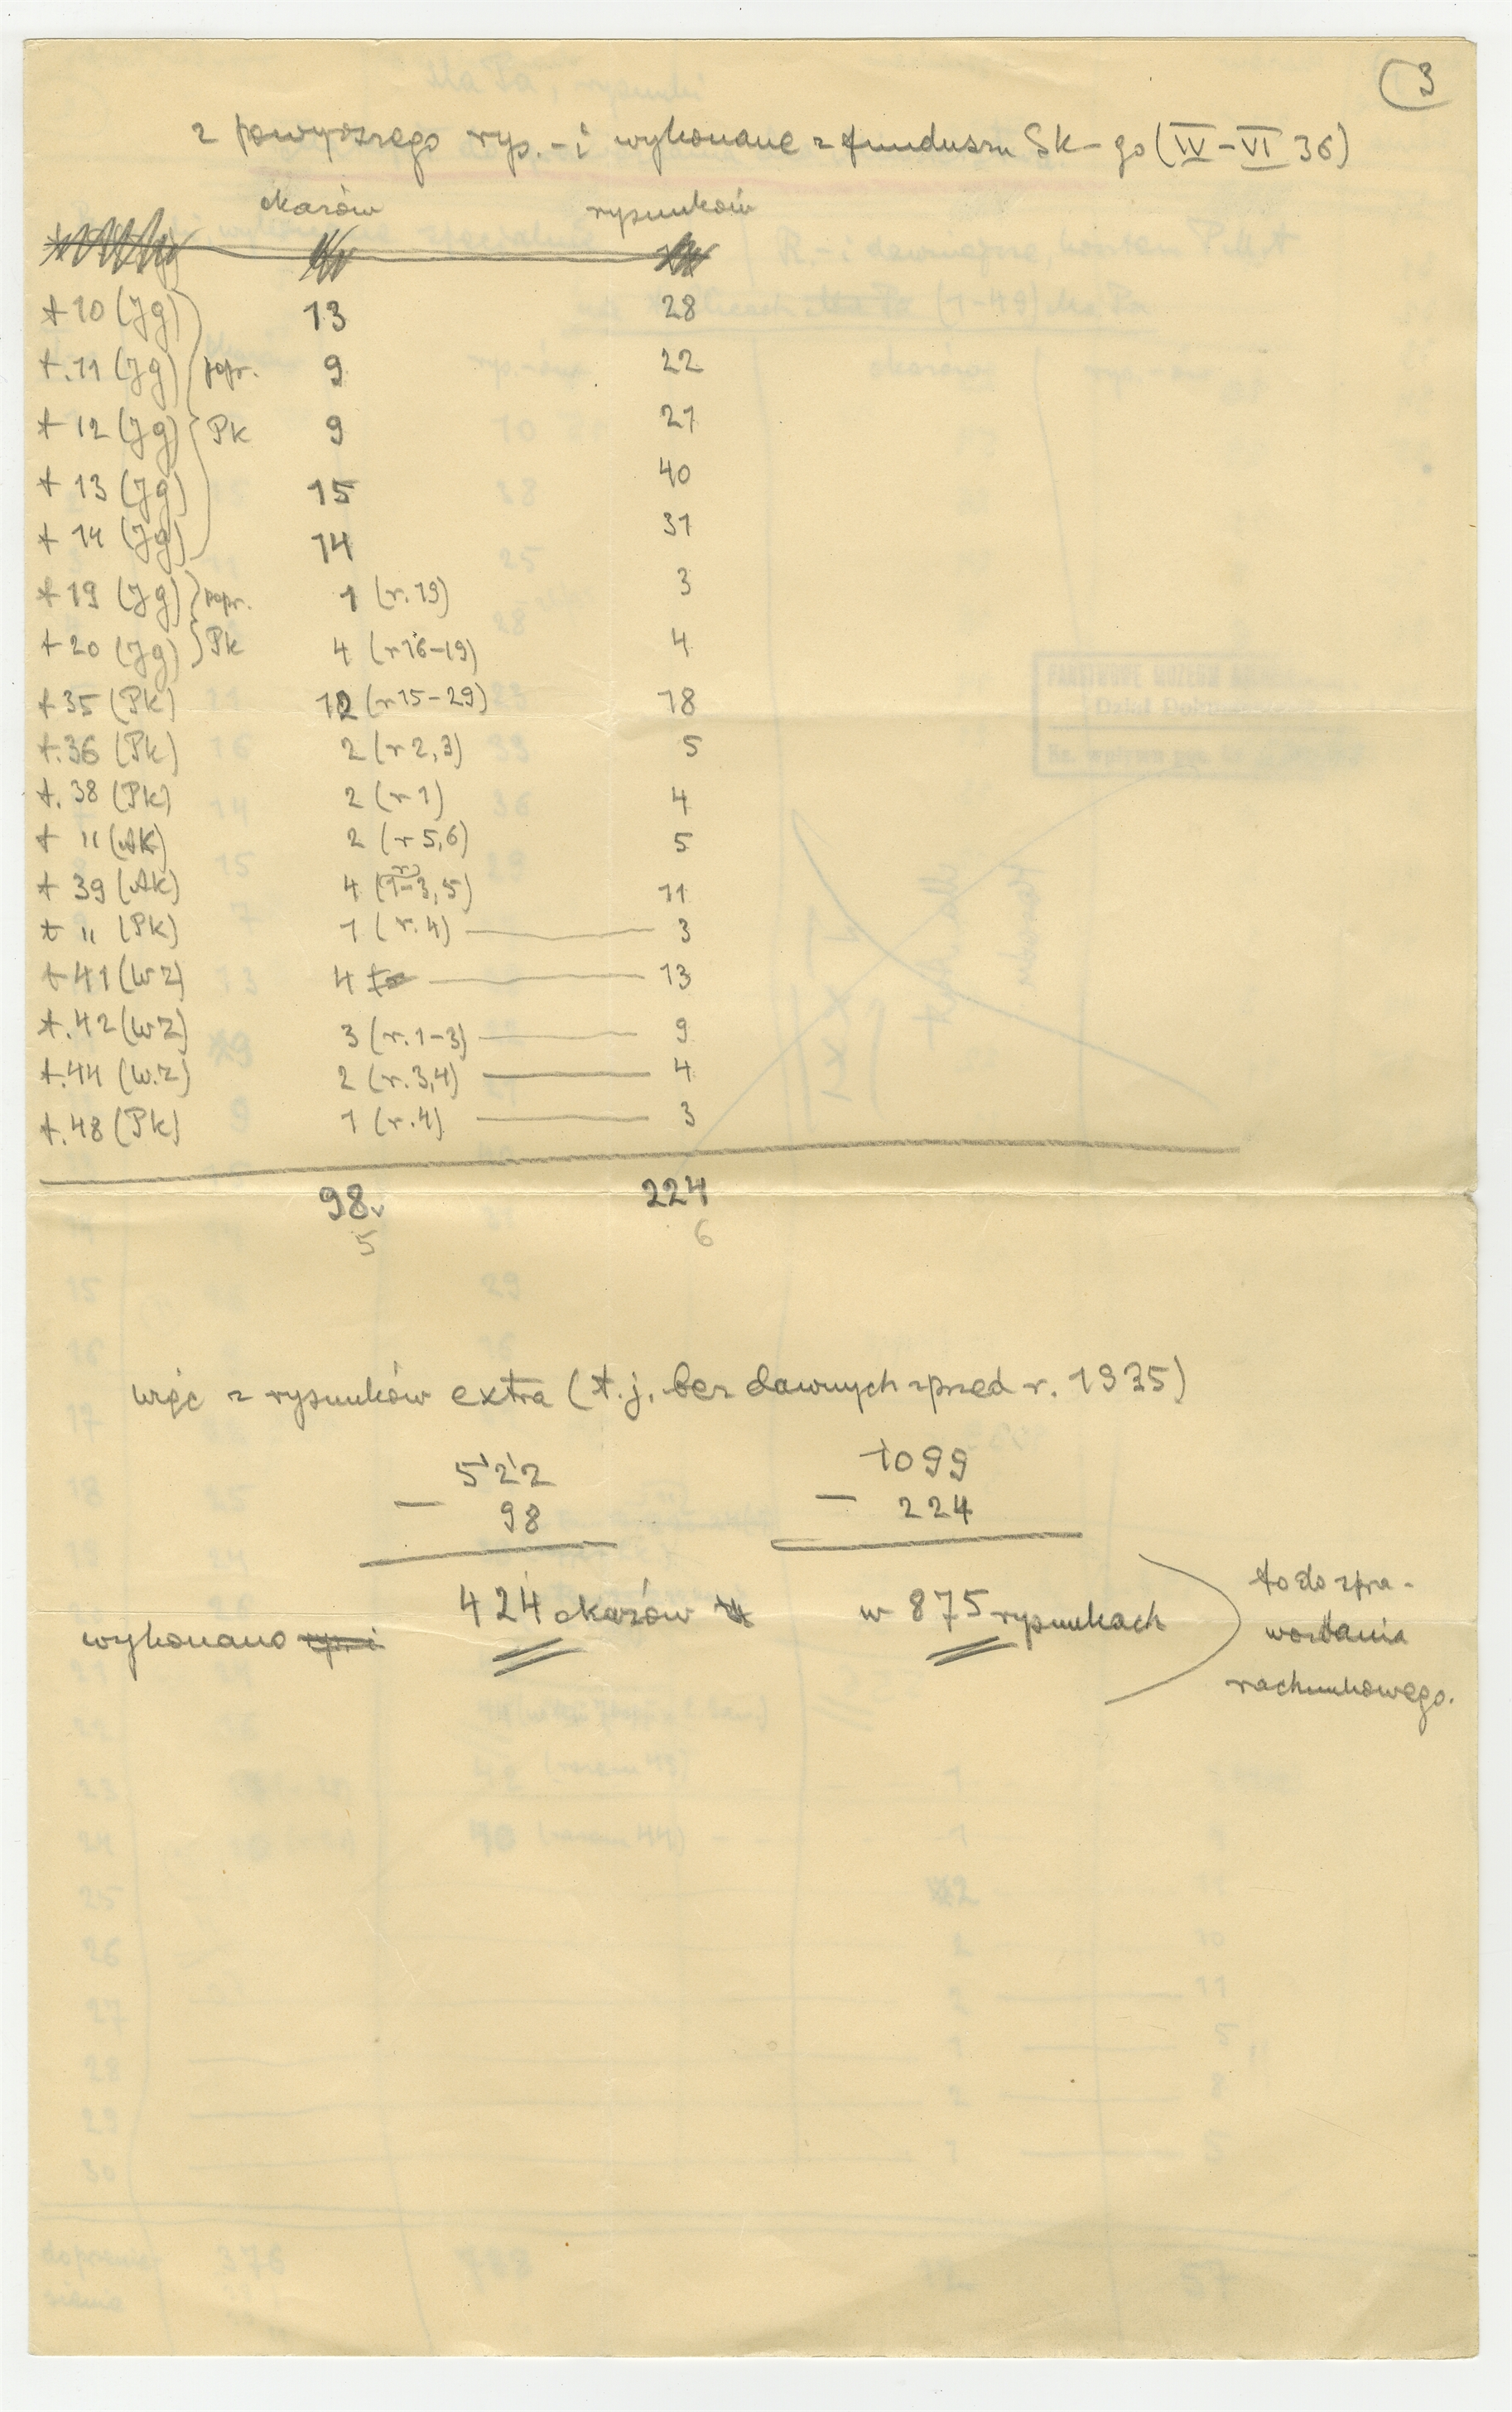 3
z powyższego rys.-i wykonane z funduszu Sk-go (IV-VI 36)
okazów rysunków
t 10 (Jg) 13 28
t. 11 (Jg) popr. 9 22
t 12 (Jg) Pk 9 21
t 13 (Jg) 15 40
t 14 (Jg) 14 31
t 19 (Jg) popr. 1 (r. 19) 3
t 20 (Jg) Pk 4 (r 16-19) 4
t 35 (Pk) 12 (r 15-29) 18
t. 36 (Pk) 2 (r 2, 3) 5
t. 38 (Pk) 2 (r 1) 4
t " (AK) 2 (r 5,6) 5
t 39 (AK) 4 (r 1-3, 5) 11
t " (Pk) 1 (r. 4) — 3
t 41 (WZ) 4 — 13
t. 42 (WZ) 3 (r. 1-3) — 9
t. 44 (W.Z) 2 (r. 3,4) — 4
t. 48 (Pk) 1 (r. 4) — 3
98 224
5 6
więc z rysunków extra (t.j. bez dawnych sprzed r. 1935)
522 1099
- 98 - 224
wykonano 424 okazów w 875 rysunkach
to do spra-
wozdania
rachunkowego.